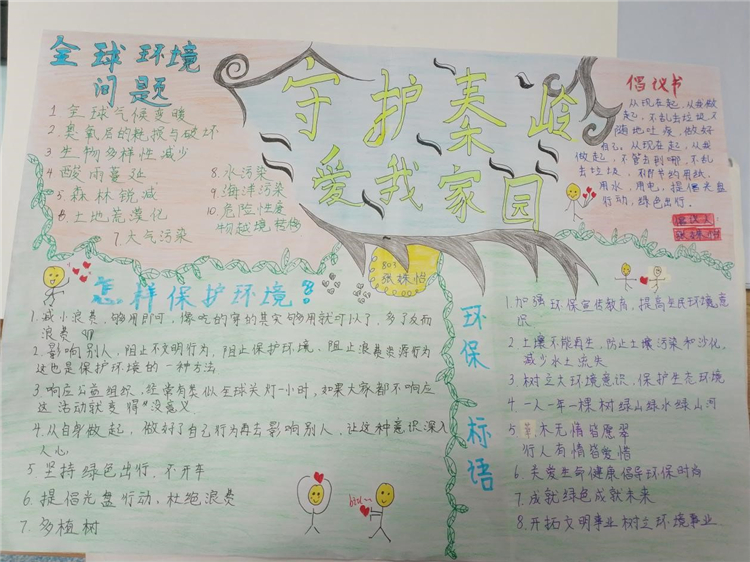 全球环境
问题
1 全球气候变暖
2 臭氧层的耗损与破坏
3 生物多样性减少
4 酸雨蔓延
5 森林锐减
6 土地荒漠化
7.大气污染
8 水污染
9 海洋污染
10 危险性废
物越境转移
守护秦岭
爱我家园
803
倡议书
从现在起,从我做
起,不乱丢垃圾,不
随地吐痰,做好
自己,从现在起,从我
做起,不管去到哪,不乱
去垃圾,不
用水,用电,提倡光盘
行动,绿色出行.
怎样保护环境?
1.减小浪费,够用即可,像吃的穿的其实够用就可以了,多了反而
浪费
2.影响别人,阻止不文明行为,阻止保护环境,阻止浪费资源行为
这也是保护环境的一种方法
3 响应公益组织,经常有类似全球关灯一小时,如果大家都不响应
这活动就变得"没意义
4.从自身做起,做好了自己行为再去影响别人,让这种意识深入
人心
5 坚持绿色出行.不开车
6.提倡光盘行动,杜绝浪费
7.多植树
环保标语
1.加强环保宣传教育,提高全民环境意
识
2.土壤不能再生,防止土壤污染和沙化,
减少水土流失
3 树立大环境意识,保护生态环境
4.一人一年一棵树绿山绿水绿山河
5 草木无情皆愿翠
行人有情皆爱惜
6.关爱生命健康倡导环保时尚
7.成就绿色成就未来
8.开拓文明事业树立环境事业